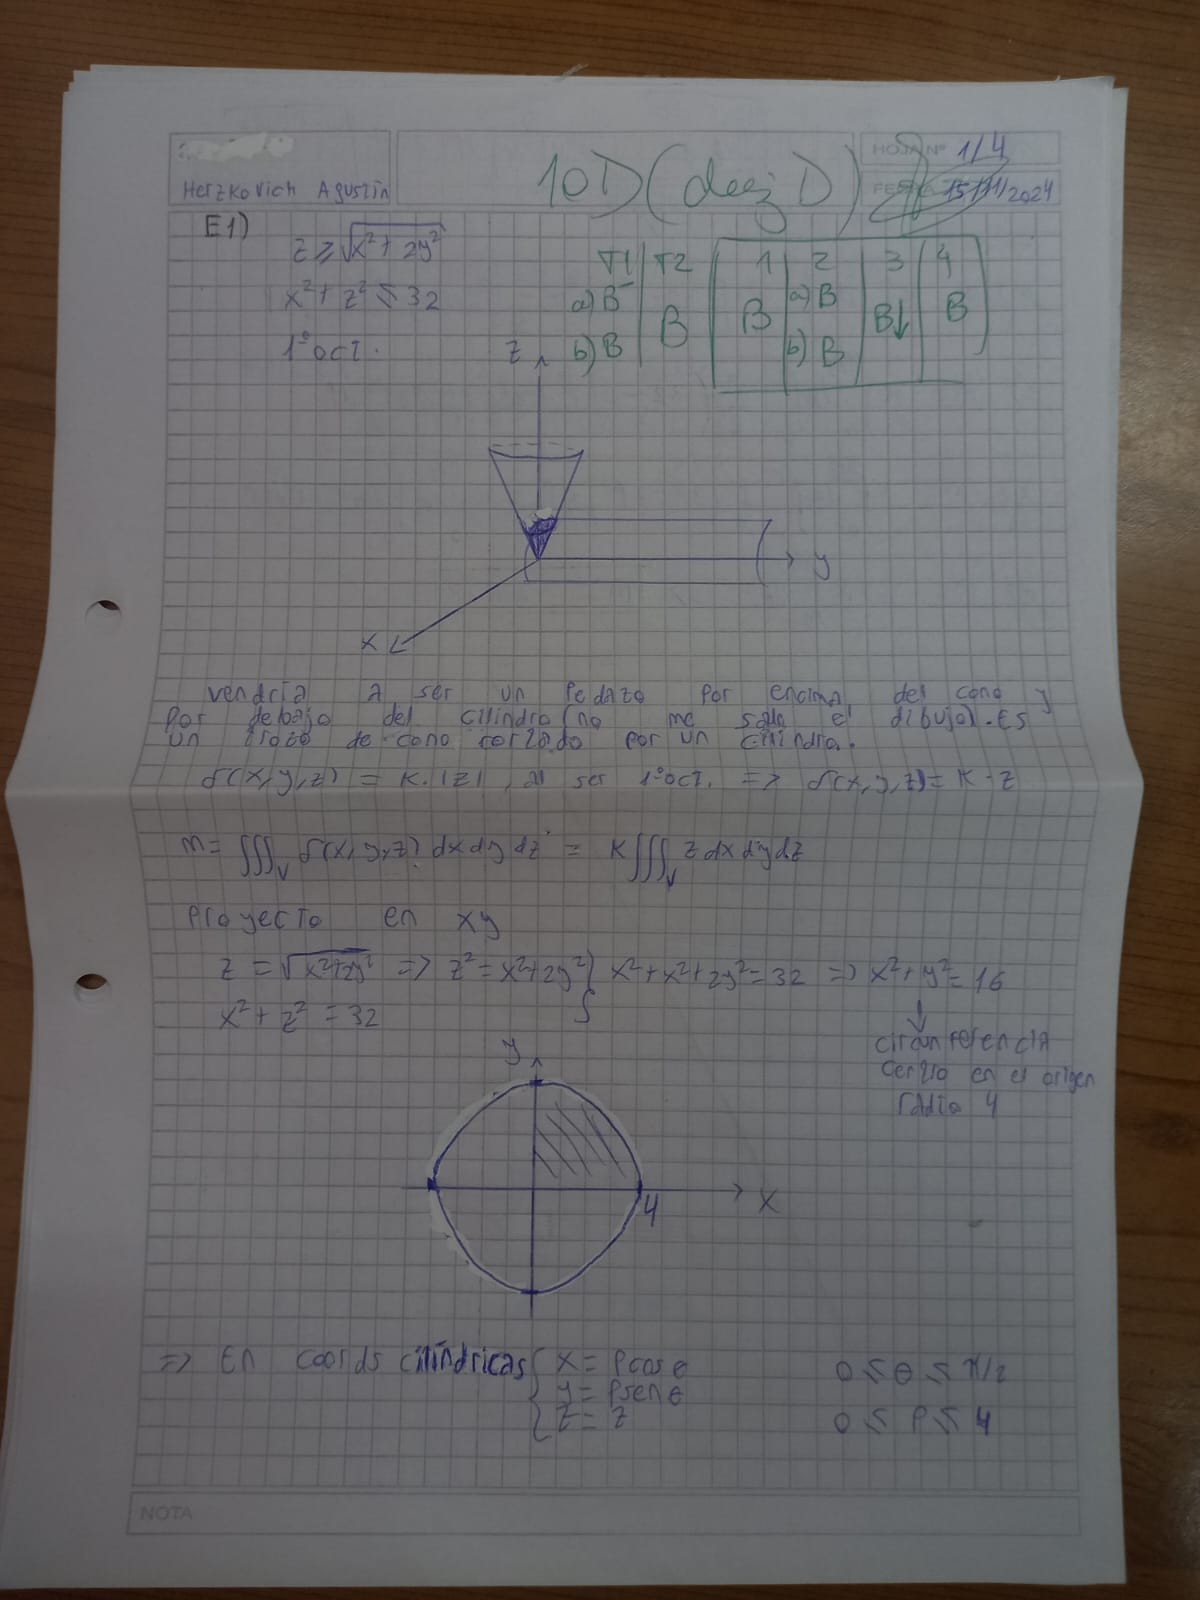 HOJA Nº 1/4
Herzkovich Agustín
10D (diez D)
FECHA 15/11/2024
E1)
z ≥ √(x² + 2y²)
x² + z² ≤ 32
1° oct.
T1 T2 1 2 3 4
a) B⁻ B B a) B B↓ B
b) B b) B
z
y
x
vendría a ser un pedazo por encima del cono y
por debajo del cilindro (no me sale el dibujo). Es
un trozo de cono cortado por un cilindro.
δ(x,y,z) = K.|z| , al ser 1° oct. => δ(x,y,z) = K·z
m = ∭v δ(x,y,z) dx dy dz = K ∭v z dx dy dz
Proyecto en xy
z = √(x²+2y²) => z² = x²+2y² } x²+x²+2y² = 32 => x²+y² = 16
x² + z² = 32
↓
circunferencia
centro en el origen
radio 4
y
x
4
=> En coords cilíndricas { x = ρ cos θ 0 ≤ θ ≤ π/2
y = ρ sen θ
z = z 0 ≤ ρ ≤ 4
NOTA